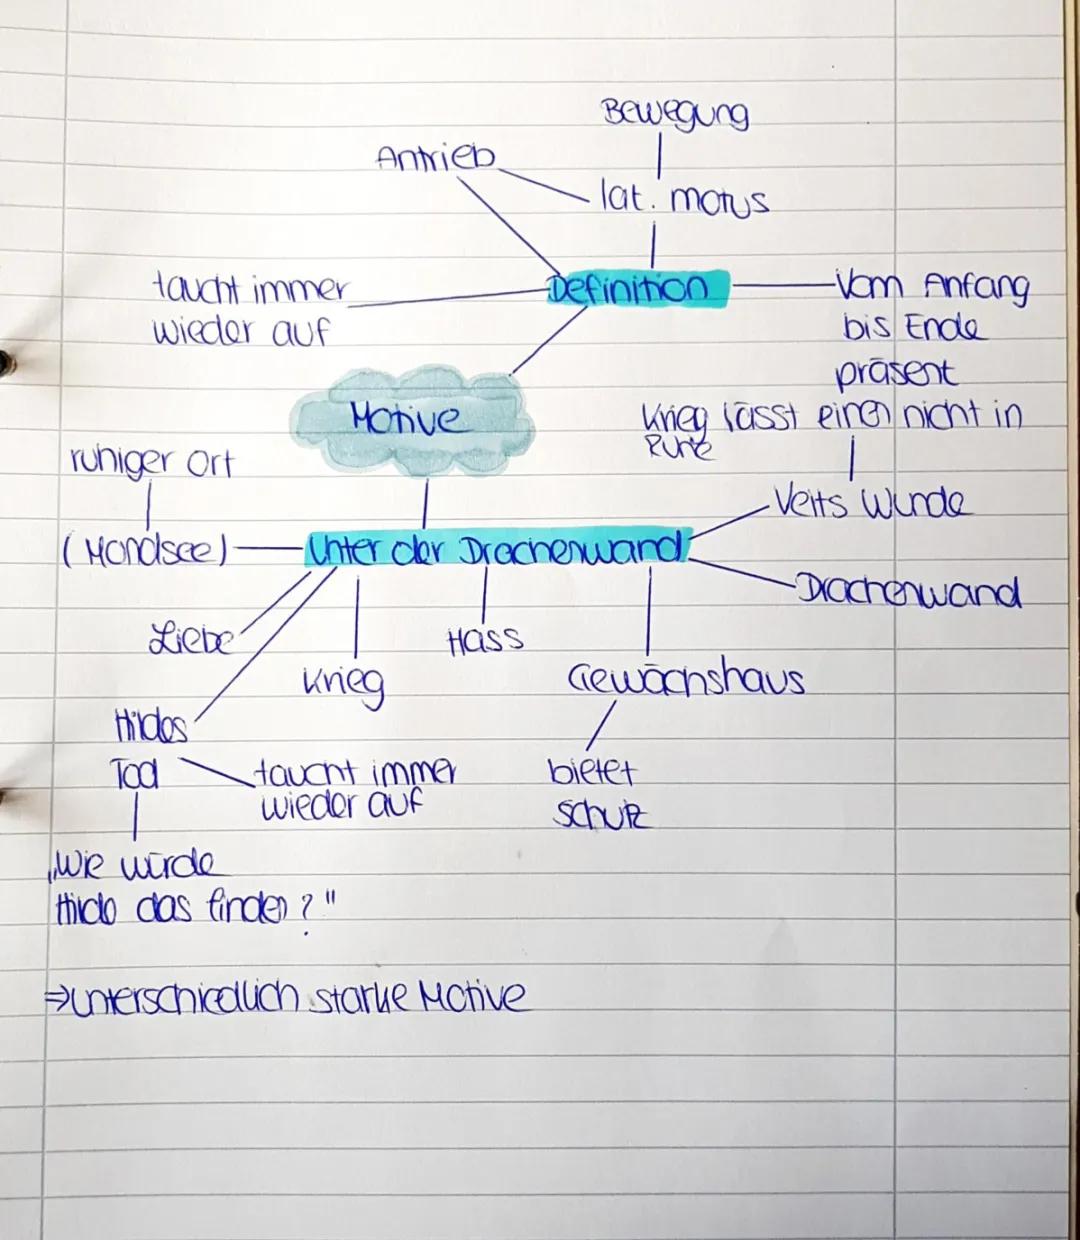 Bewegung
Antrieb
lat. motus
taucht immer
wieder auf
Definition
Vom Anfang
bis Ende
präsent
Motive
Krieg lässt einen nicht in
Ruhe
ruhiger Ort
Veits Wunde
(Mondsee)
Unter der Drachenwand
Drachenwand
Liebe
Hass
Krieg
Gewächshaus
Hildes
Tod
taucht immer
wieder auf
bietet
Schutz
„Wie würde
Hilde das finden?"
⇒ unterschiedlich starke Motive